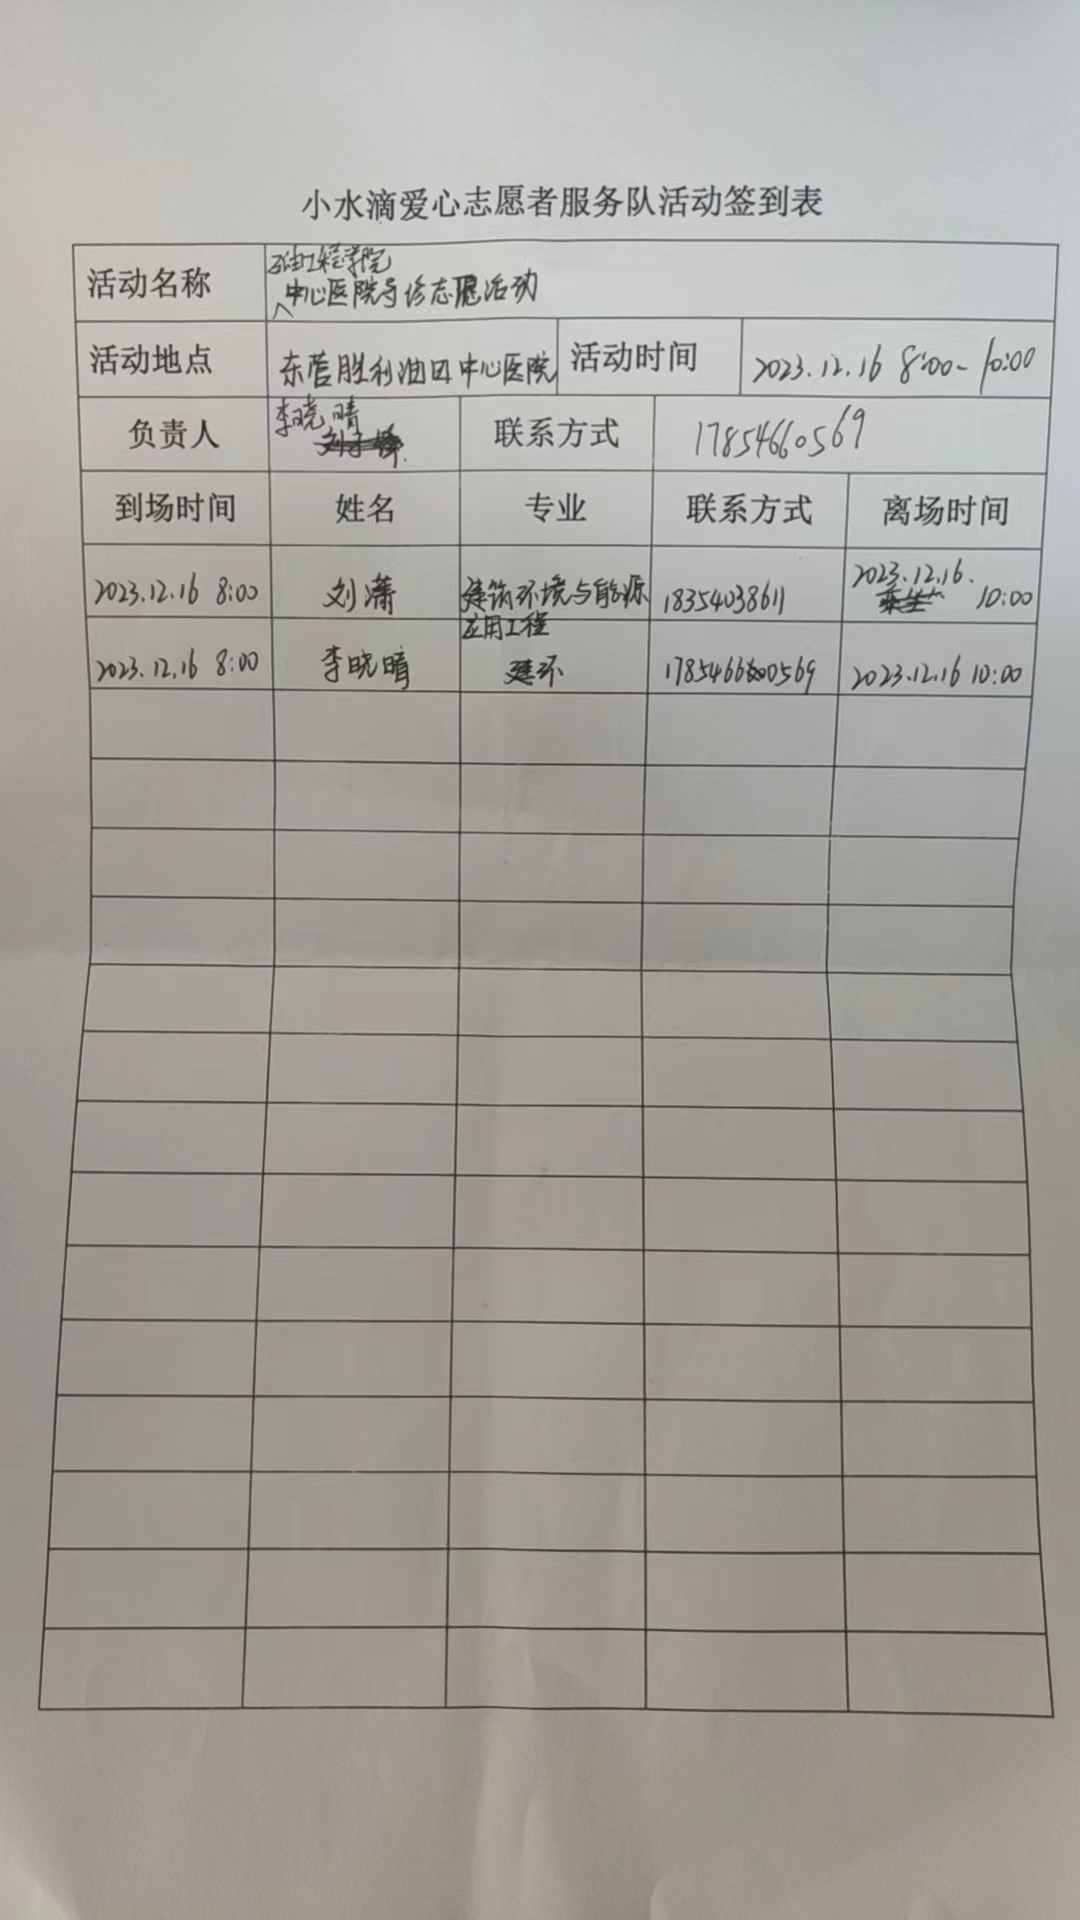 小水滴爱心志愿者服务队活动签到表
活动名称
石油工程学院
中心医院导诊志愿活动
活动地点 东营胜利油田中心医院 活动时间 2023.12.16 8:00-10:00
负责人 李晓晴 联系方式 17854660569
到场时间 姓名 专业 联系方式 离场时间
2023.12.16 8:00 刘潇 建筑环境与能源 18354038611 2023.12.16. 10:00
应用工程
2023.12.16 8:00 李晓晴 建环 2023.12.16 10:00